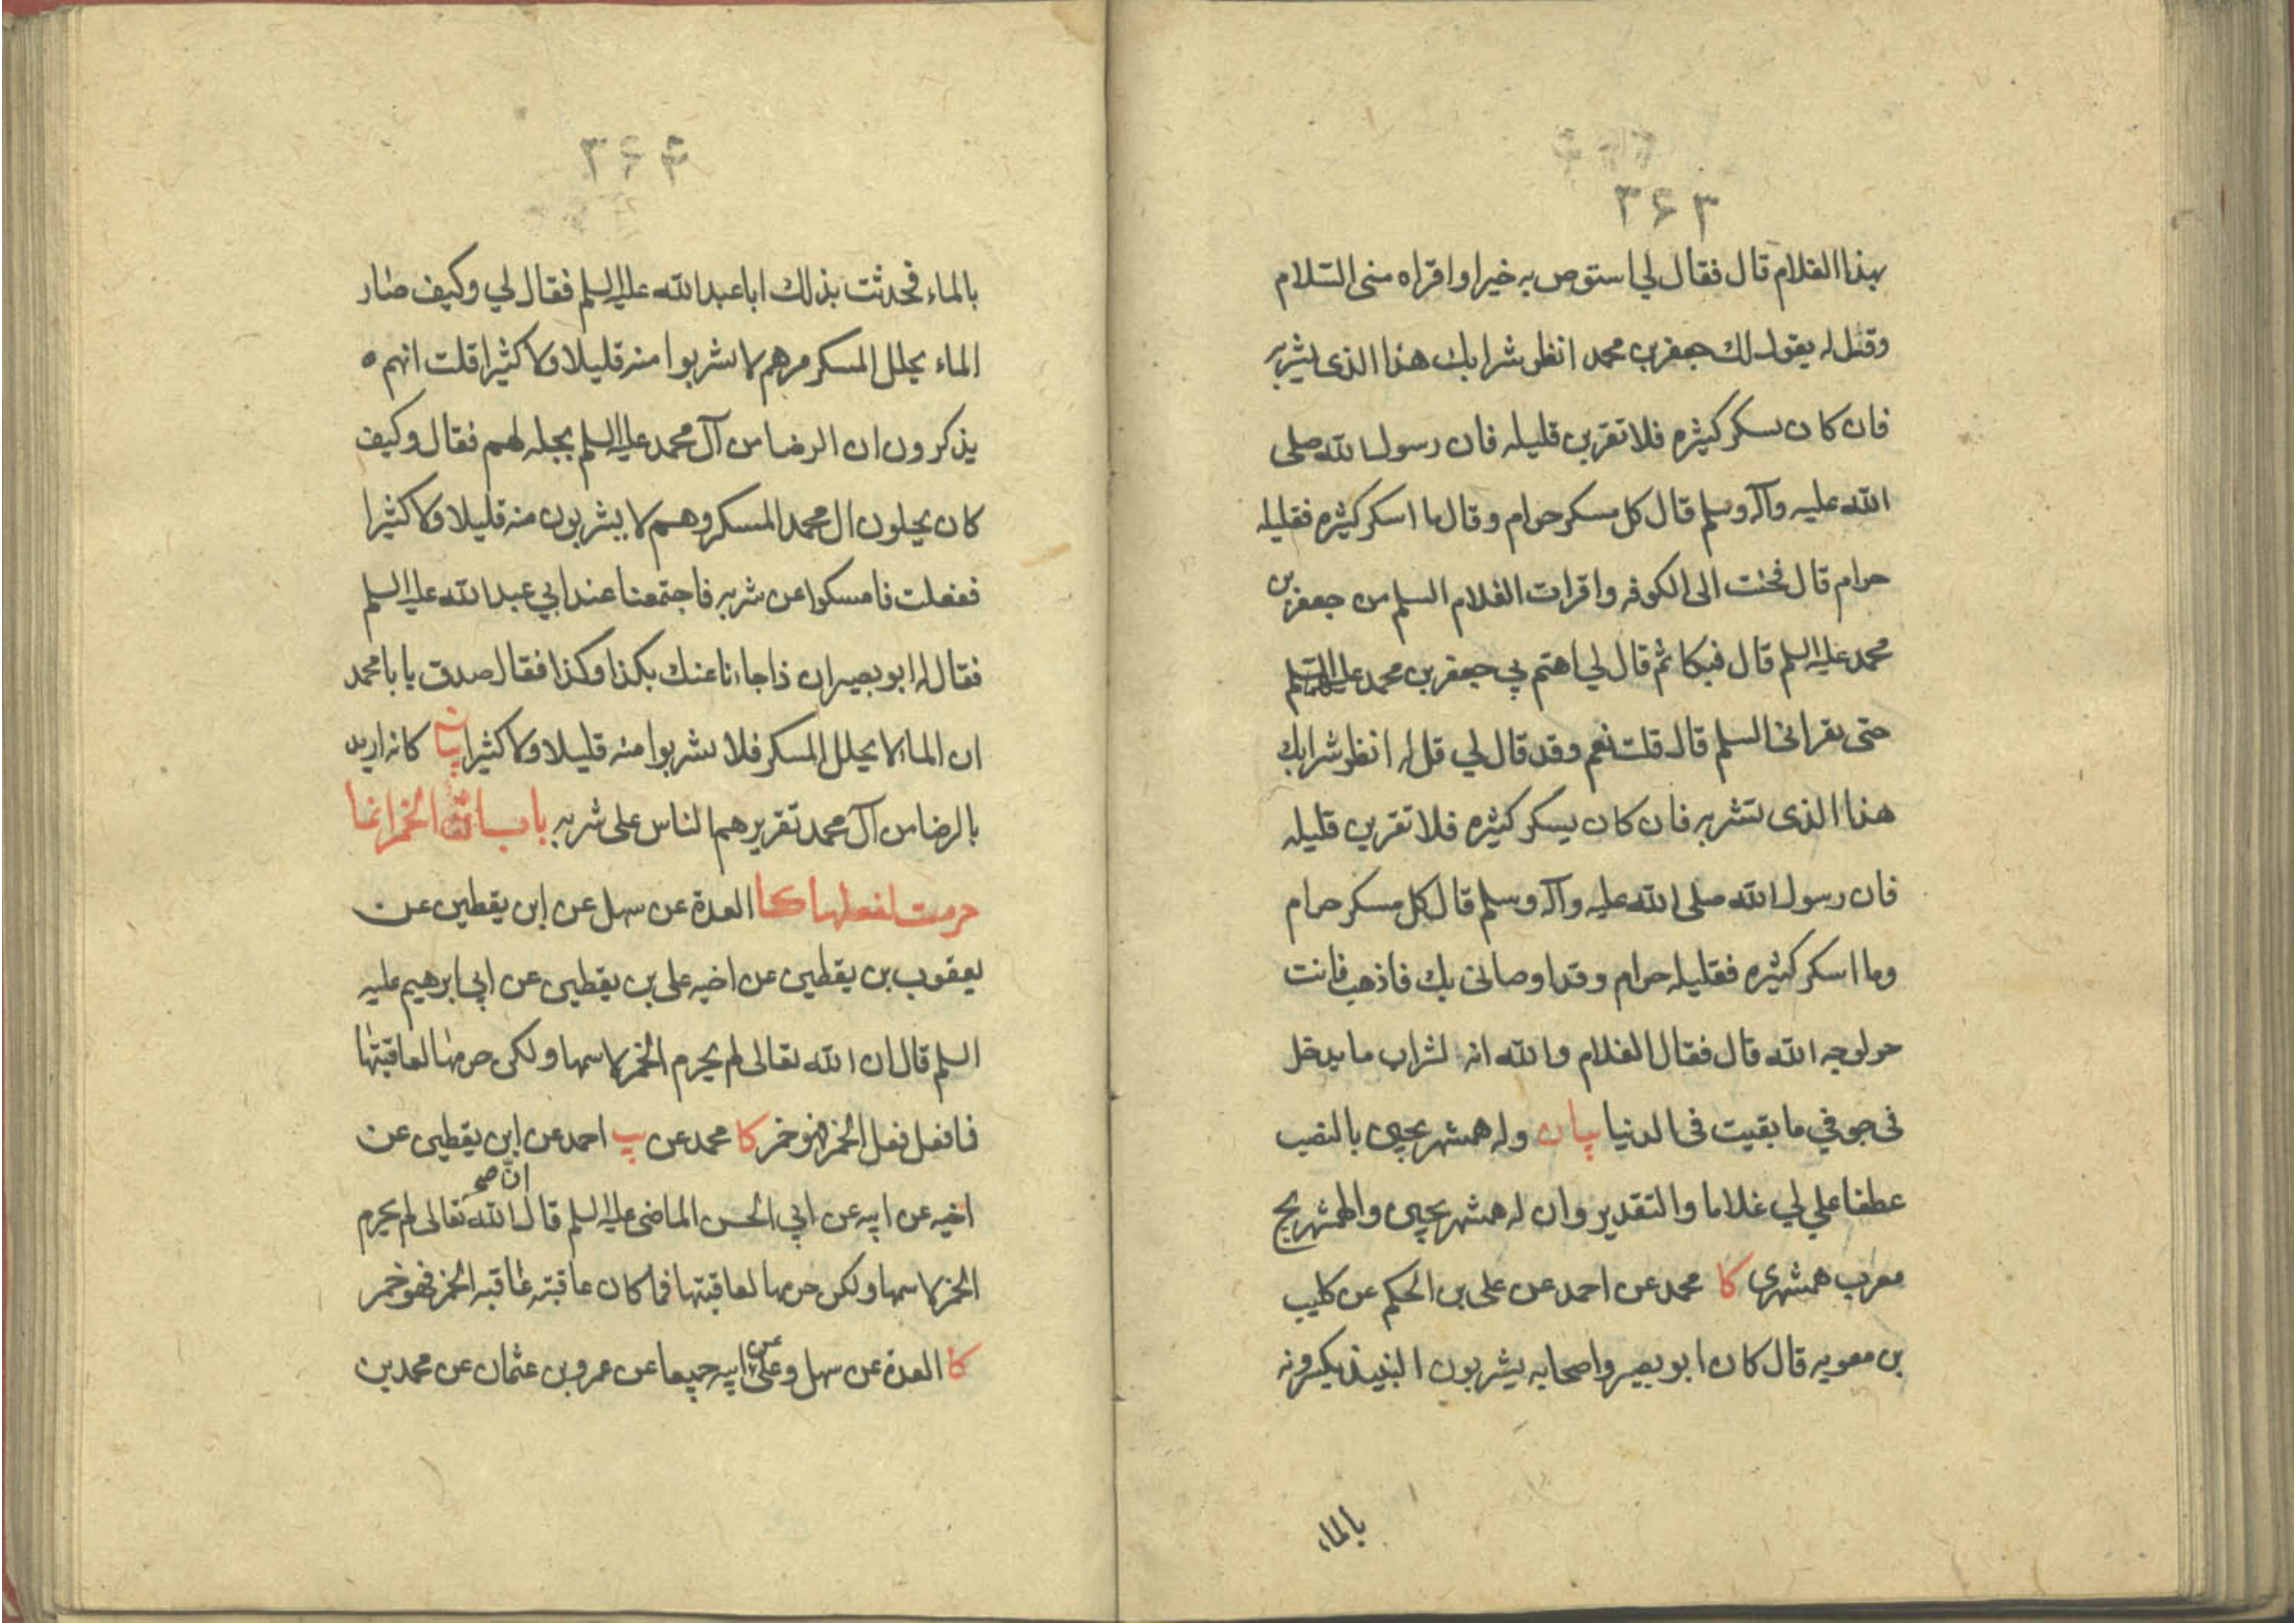 ۳۶۳
بهذا الغلام قال فقال لي استوص به خيرا واقراه منى السّلام
وقل له يقول لك جعفر بن محمد انظر شرابك هذا الذى تشربه
فان كان يسكر كثيره فلا تقربن قليله فان رسول الله صلى
الله عليه وآله وسلم قال كل مسكر حرام وقال ما اسكر كثيره فقليله
حرام قال فجئت الى الكوفه واقرات الغلام السلم من جعفر بن
محمد عليه السلم قال فبكا ثم قال لي اهتم بي جعفر بن محمد عليه السلم
حتى يقرانى السلم قال قلت نعم وقد قال لي قل له انظر شرابك
هذا الذى تشربه فان كان يسكر كثيره فلا تقربن قليله
فان رسول الله صلى الله عليه وآله وسلم قال كل مسكر حرام
وما اسكر كثيره فقليله حرام وقد اوصانى بك فاذهب فانت
حر لوجه الله قال فقال الغلام والله انه لشراب ما يدخل
فى جوفي ما بقيت فى الدنيا بيان وله همشهريجى بالنصب
عطفا على لي غلاما والتقدير وان له همشهريجى والهمشهريج
معرب همشهرى كا محمد عن احمد عن على بن الحكم عن كليب
بن معويه قال كان ابو بصير واصحابه يشربون النبيذ يكسرونه
بالماء
۳۶۴
بالماء فحدثت بذلك ابا عبد الله عليه السلم فقال لي وكيف صار
الماء يحلل المسكر مرهم لا يشربوا منه قليلا ولا كثيرا قلت انهم
يذكرون ان الرضا من آل محمد عليه السلم يحله لهم فقال وكيف
كان يحلون ال محمد المسكر وهم لا يشربون منه قليلا ولا كثيرا
ففعلت فامسكوا عن شربه فاجتمعنا عند ابي عبد الله عليه السلم
فقال له ابو بصير ان ذا جاءنا عنك بكذا وكذا فقال صدق يا با محمد
ان الماء لا يحلل المسكر فلا تشربوا منه قليلا ولا كثيرا بيان كانه اريد
بالرضا من آل محمد تقريرهم الناس على شربه باب ان الخمر انما
حرمت لفعلها كا العدة عن سهل عن ابن يقطين عن
يعقوب بن يقطين عن اخيه على بن يقطين عن ابي ابرهيم عليه
السلم قال ان الله تعالى لم يحرم الخمر لاسمها ولكن حرمها لعاقبتها
فما فعل فعل الخمر فهو خمر كا محمد عن يب احمد عن ابن يقطين عن
اخيه عن ابيه عن ابي الحسن الماضى عليه السلم قال انّ صح الله تعالى لم يحرم
الخمر لاسمها ولكن حرمها لعاقبتها فما كان عاقبته عاقبه الخمر فهو خمر
كا العدة عن سهل وعلى عن ابيه جميعا عن عمرو بن عثمان عن محمد بن